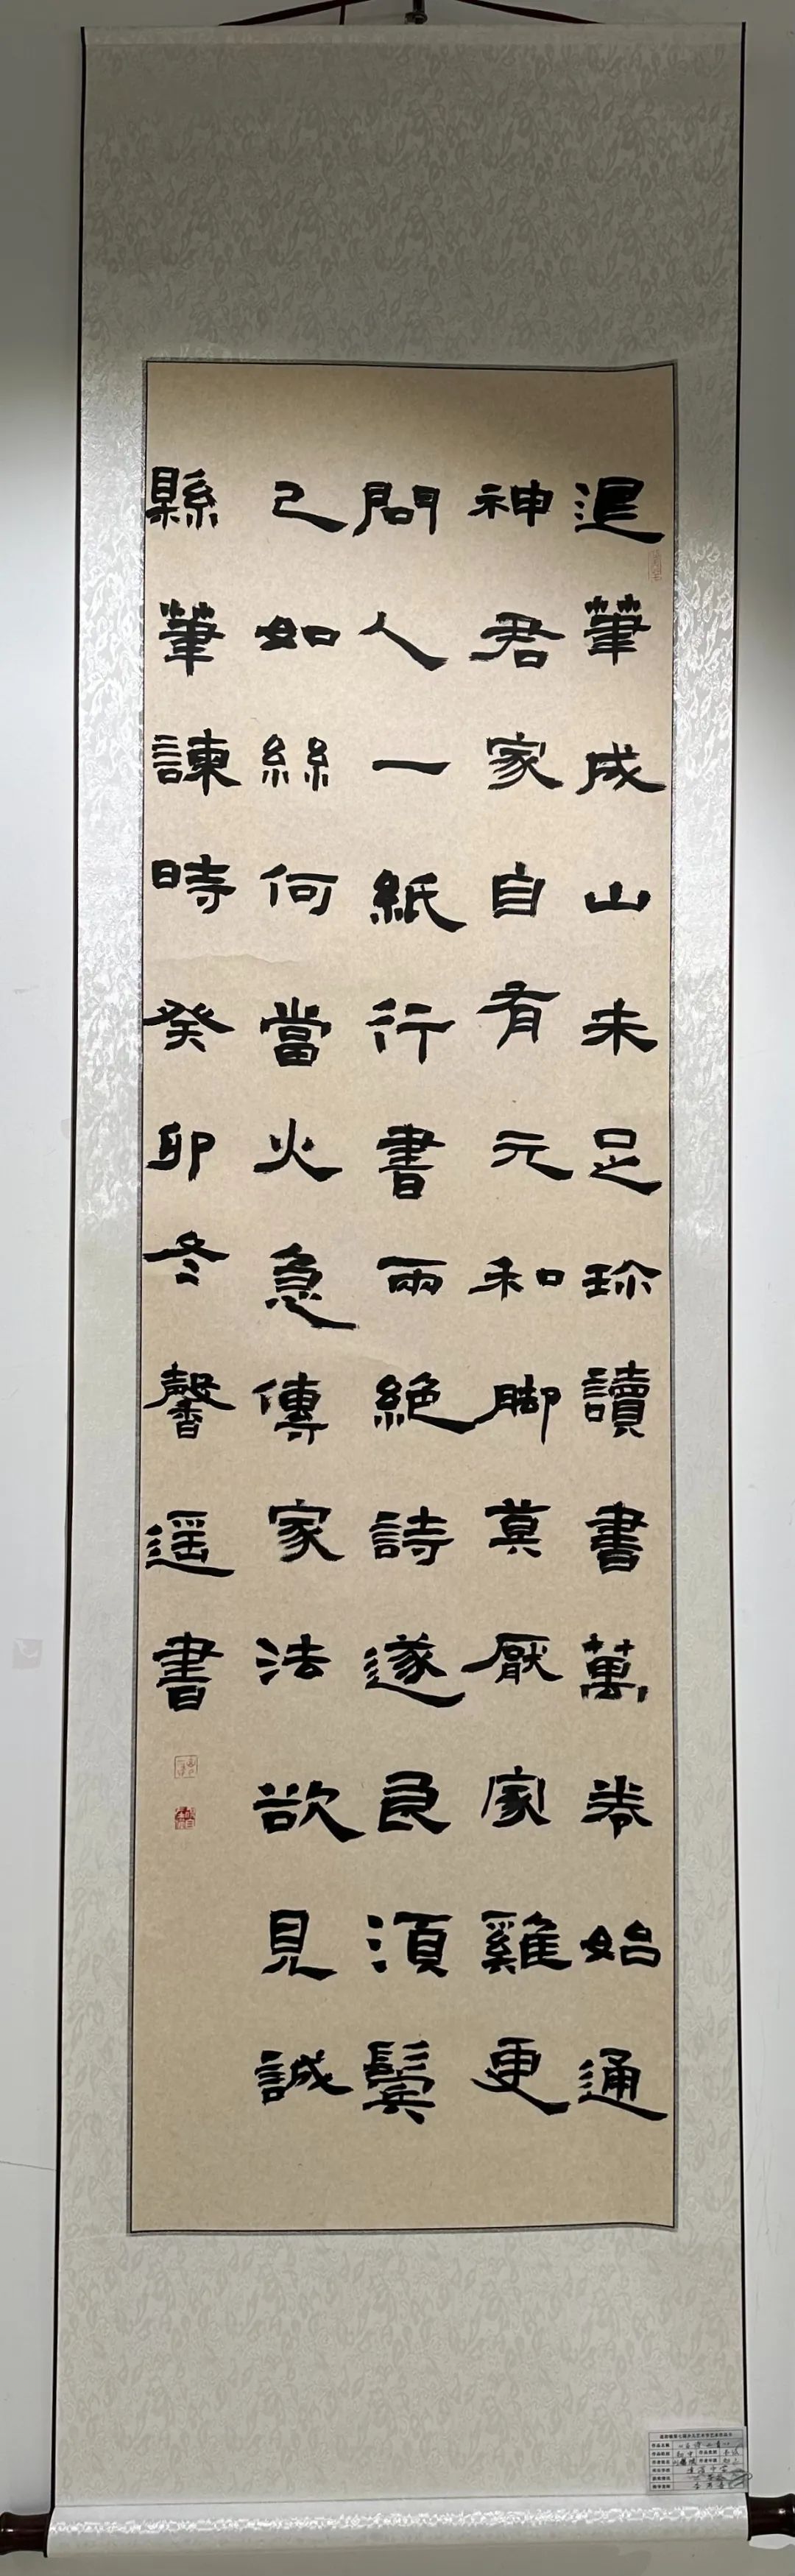 退筆成山未足珎讀書萬卷始通
神君家自有元和脚莫厭家雞更
問人一紙行書兩絕詩遂良湏鬢
已如絲何當火急傳家法欲見誠
縣筆諫時癸卯冬馨遥書